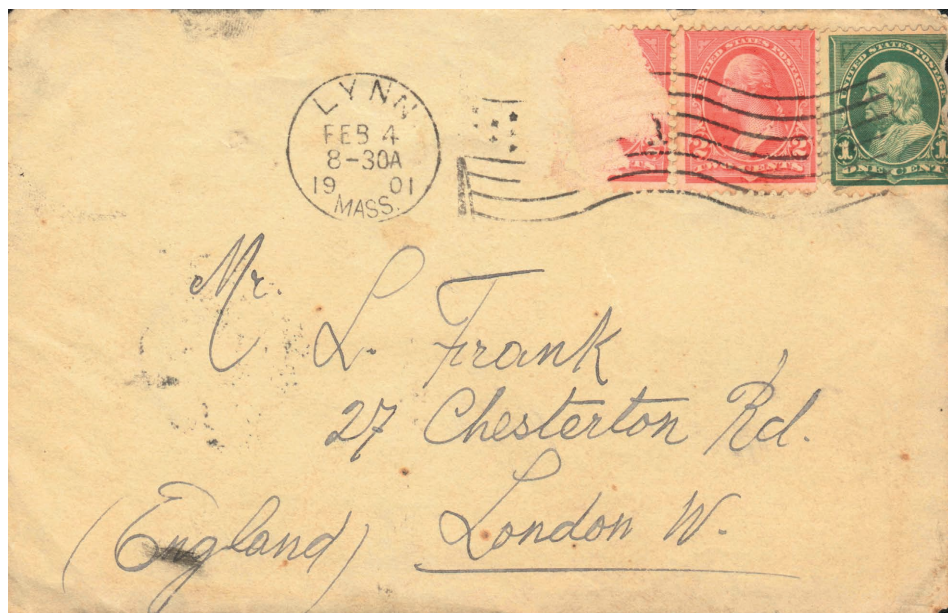 LYNN
FEB 4
8-30A
19 01
MASS.
UNITED STATES POSTAGE
2 2
TWO CENTS
UNITED STATES POSTAGE
1 1
ONE CENT
Mr. L. Frank
27 Chesterton Rd.
London W.
(England)